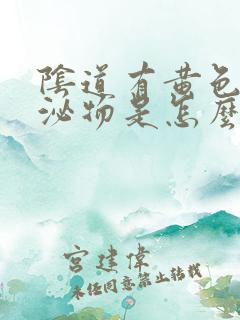 陰道有黃色
泌物是怎麼
宮建偉
未经同意禁止转载